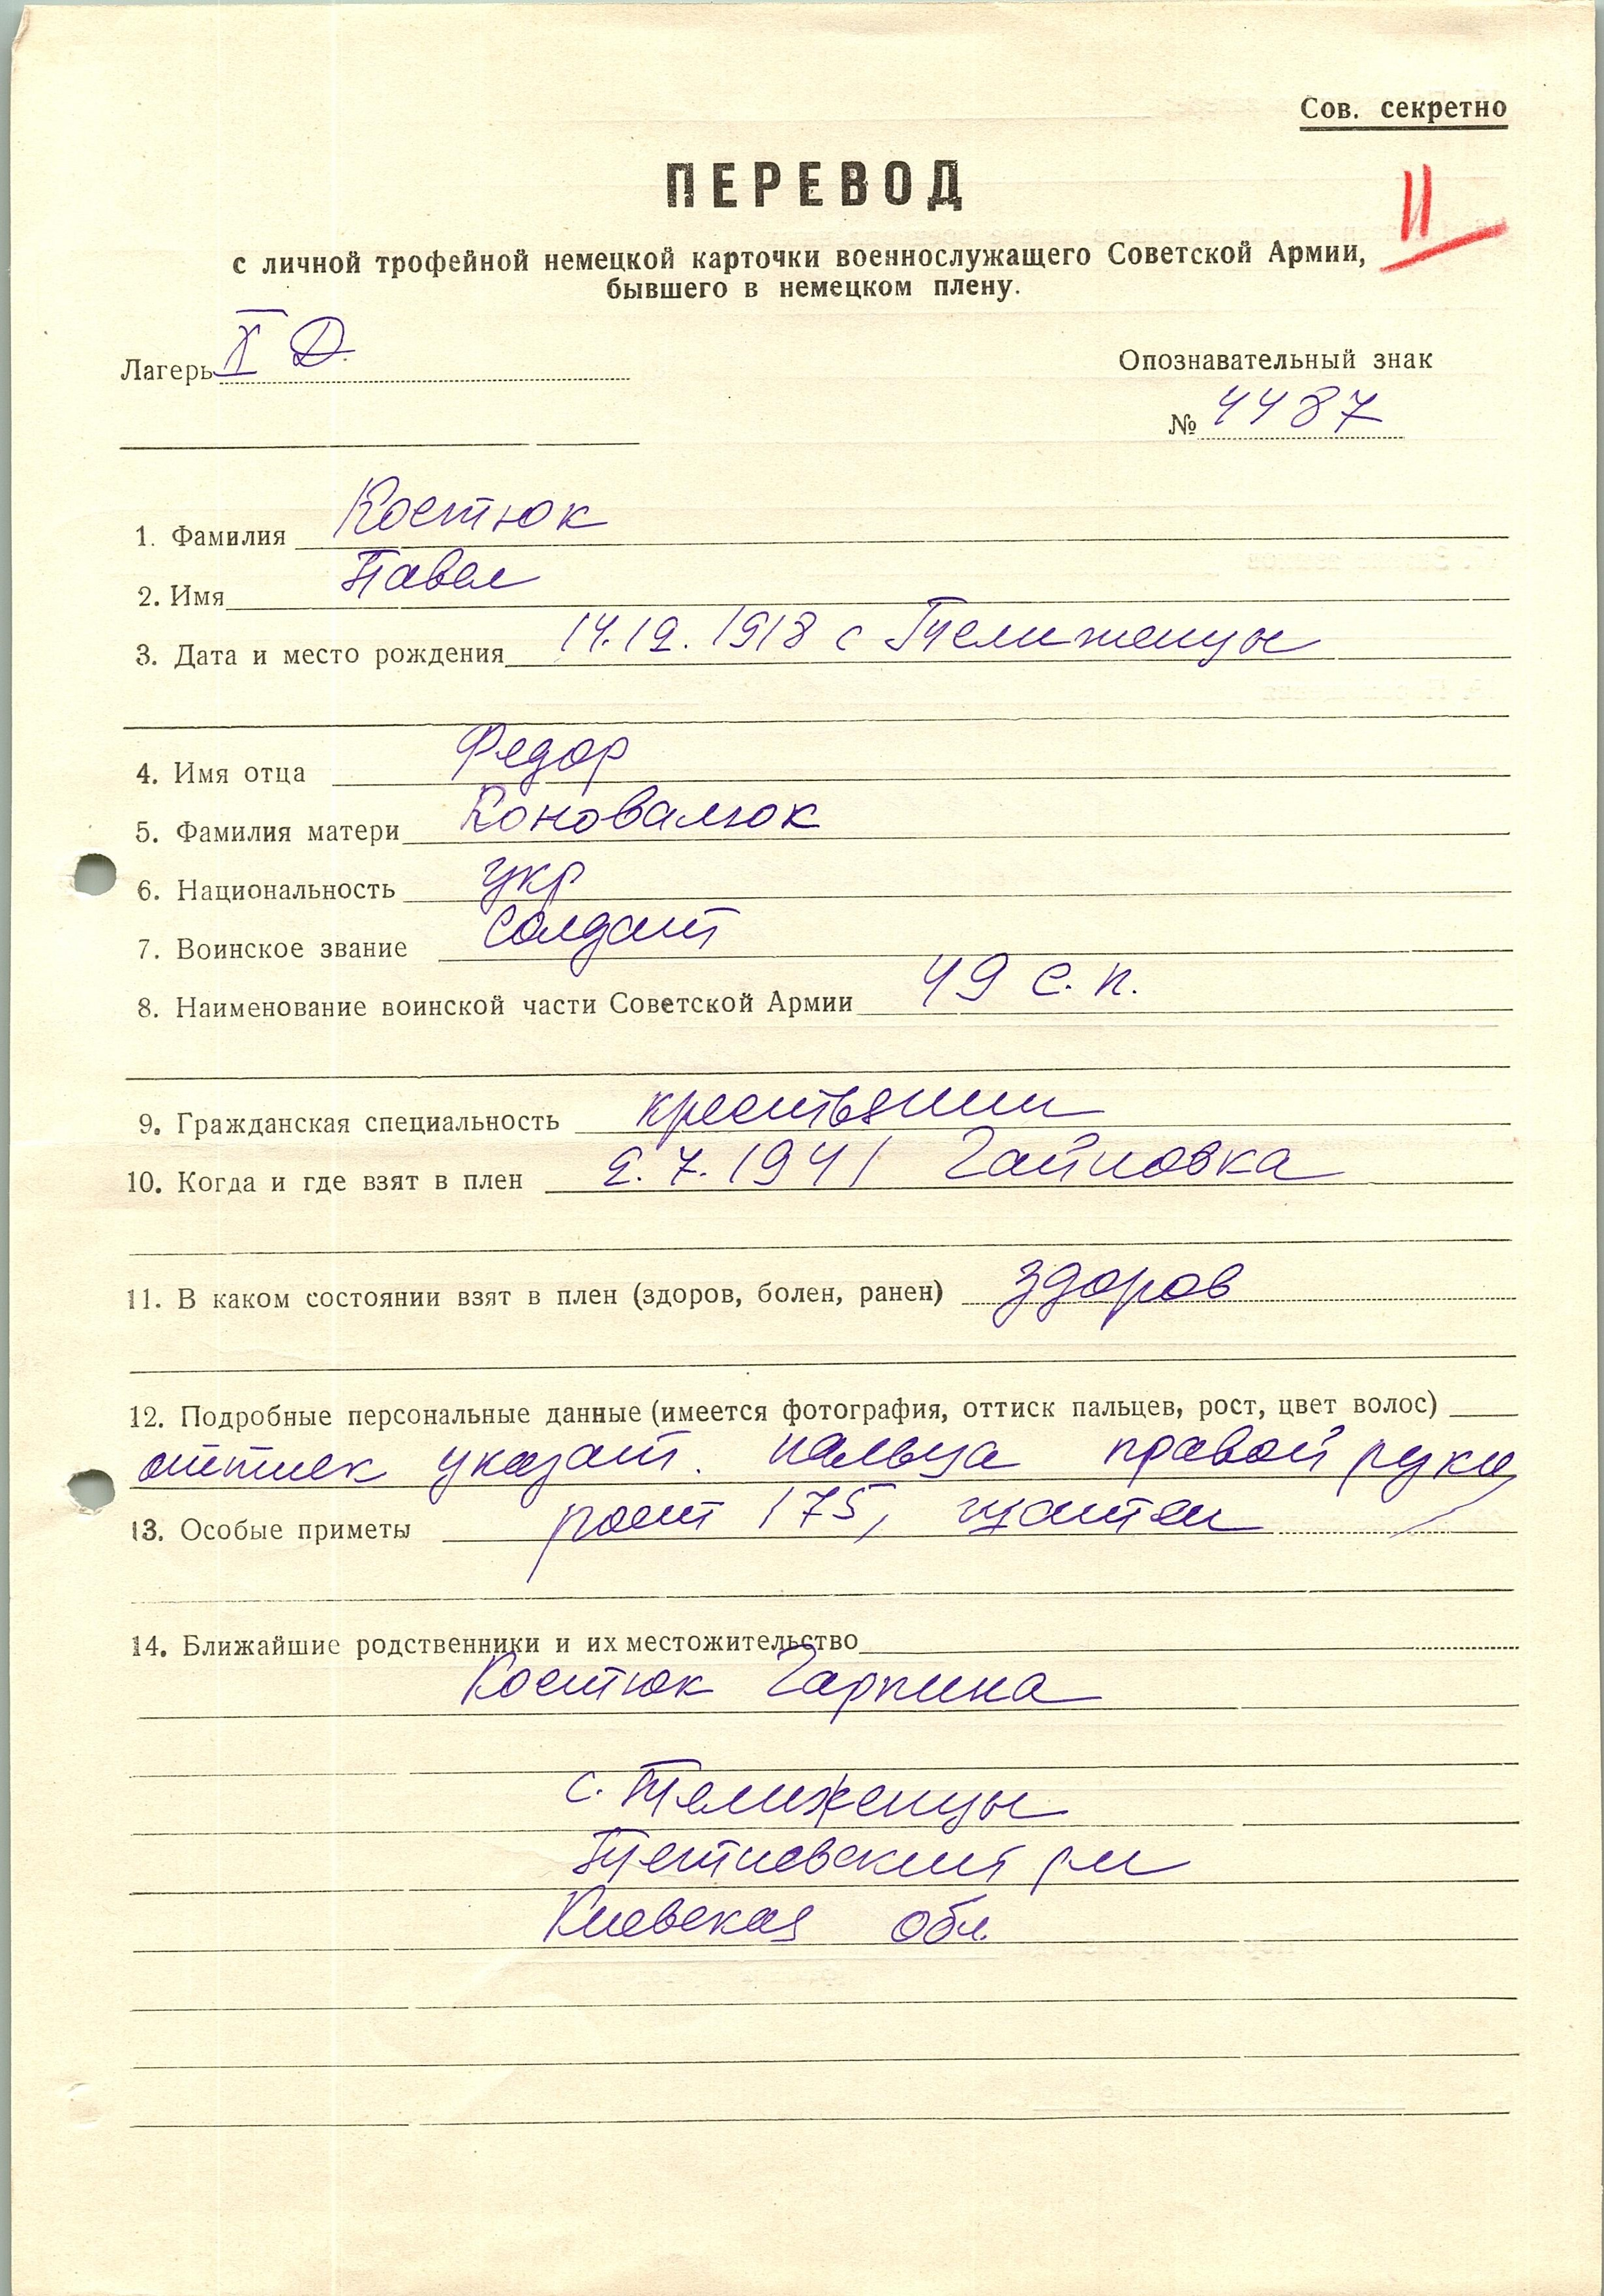 Сов. секретно
ПЕРЕВОД
11
с личной трофейной немецкой карточки военнослужащего Советской Армии,
бывшего в немецком плену.
Лагерь X Д.
Опознавательный знак
№ 4487
1. Фамилия Костюк
2. Имя Павел
3. Дата и место рождения 14.12.1918 с Телиженцы
4. Имя отца Федор
5. Фамилия матери Коновалюк
6. Национальность укр
7. Воинское звание Солдат
8. Наименование воинской части Советской Армии 49 с.п.
9. Гражданская специальность крестьянин
10. Когда и где взят в плен 2.7.1941 Гайновка
11. В каком состоянии взят в плен (здоров, болен, ранен) здоров
12. Подробные персональные данные (имеется фотография, оттиск пальцев, рост, цвет волос)
оттиск указат. пальца правой руки
13. Особые приметы рост 175,
14. Ближайшие родственники и их местожительство
Костюк Гарпина
с. Телиженцы
Тетиевский р-н
Киевская обл.